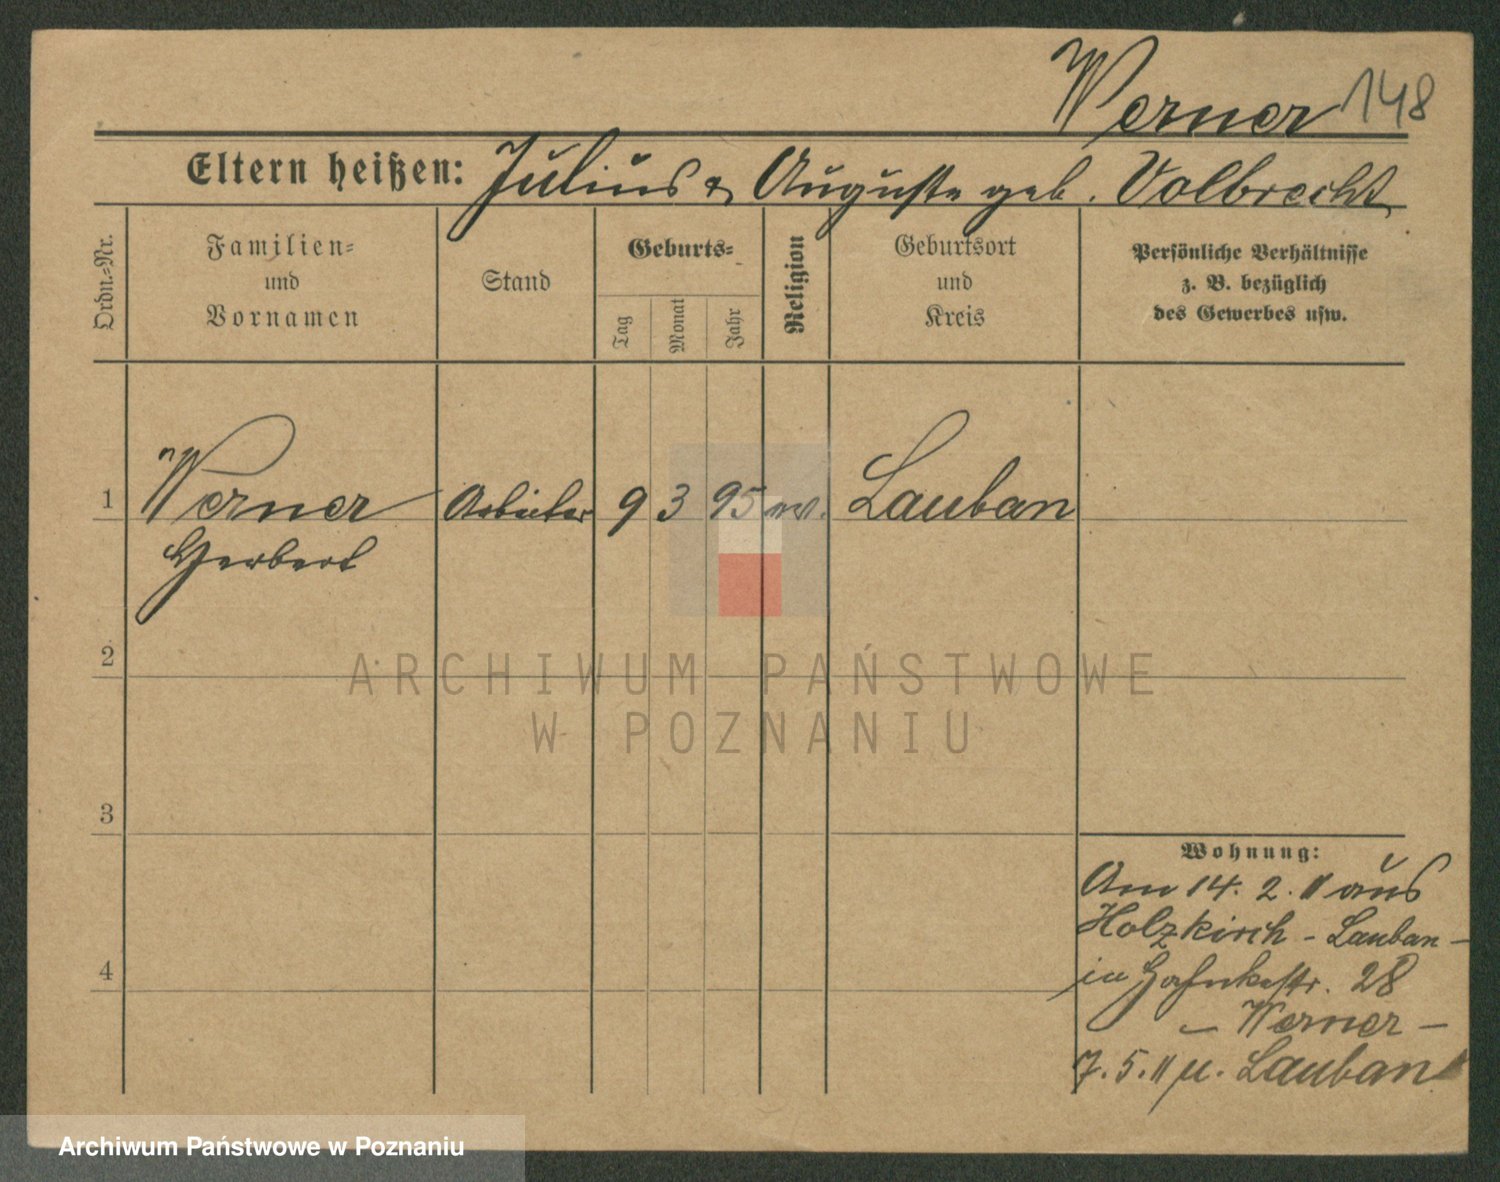 Werner 148
Eltern heißen: Julius & Auguste geb. Volbrecht
Ordn.-Nr.
Familien-
und
Vornamen
Stand
Geburts-
Tag
Monat
Jahr
Religion
Geburtsort
und
Kreis
Persönliche Verhältnisse
z. B. bezüglich
des Gewerbes usw.
1 Werner Arbeiter 9 3 95 ev. Lauban
Herbert
2
3
4
Wohnung:
Am 14. 2. 11 aus
Holzkirch - Lauban -
in 28
- Werner -
7. 5. 11 n. Lauban
ARCHIWUM PAŃSTWOWE
W POZNANIU
Archiwum Państwowe w Poznaniu